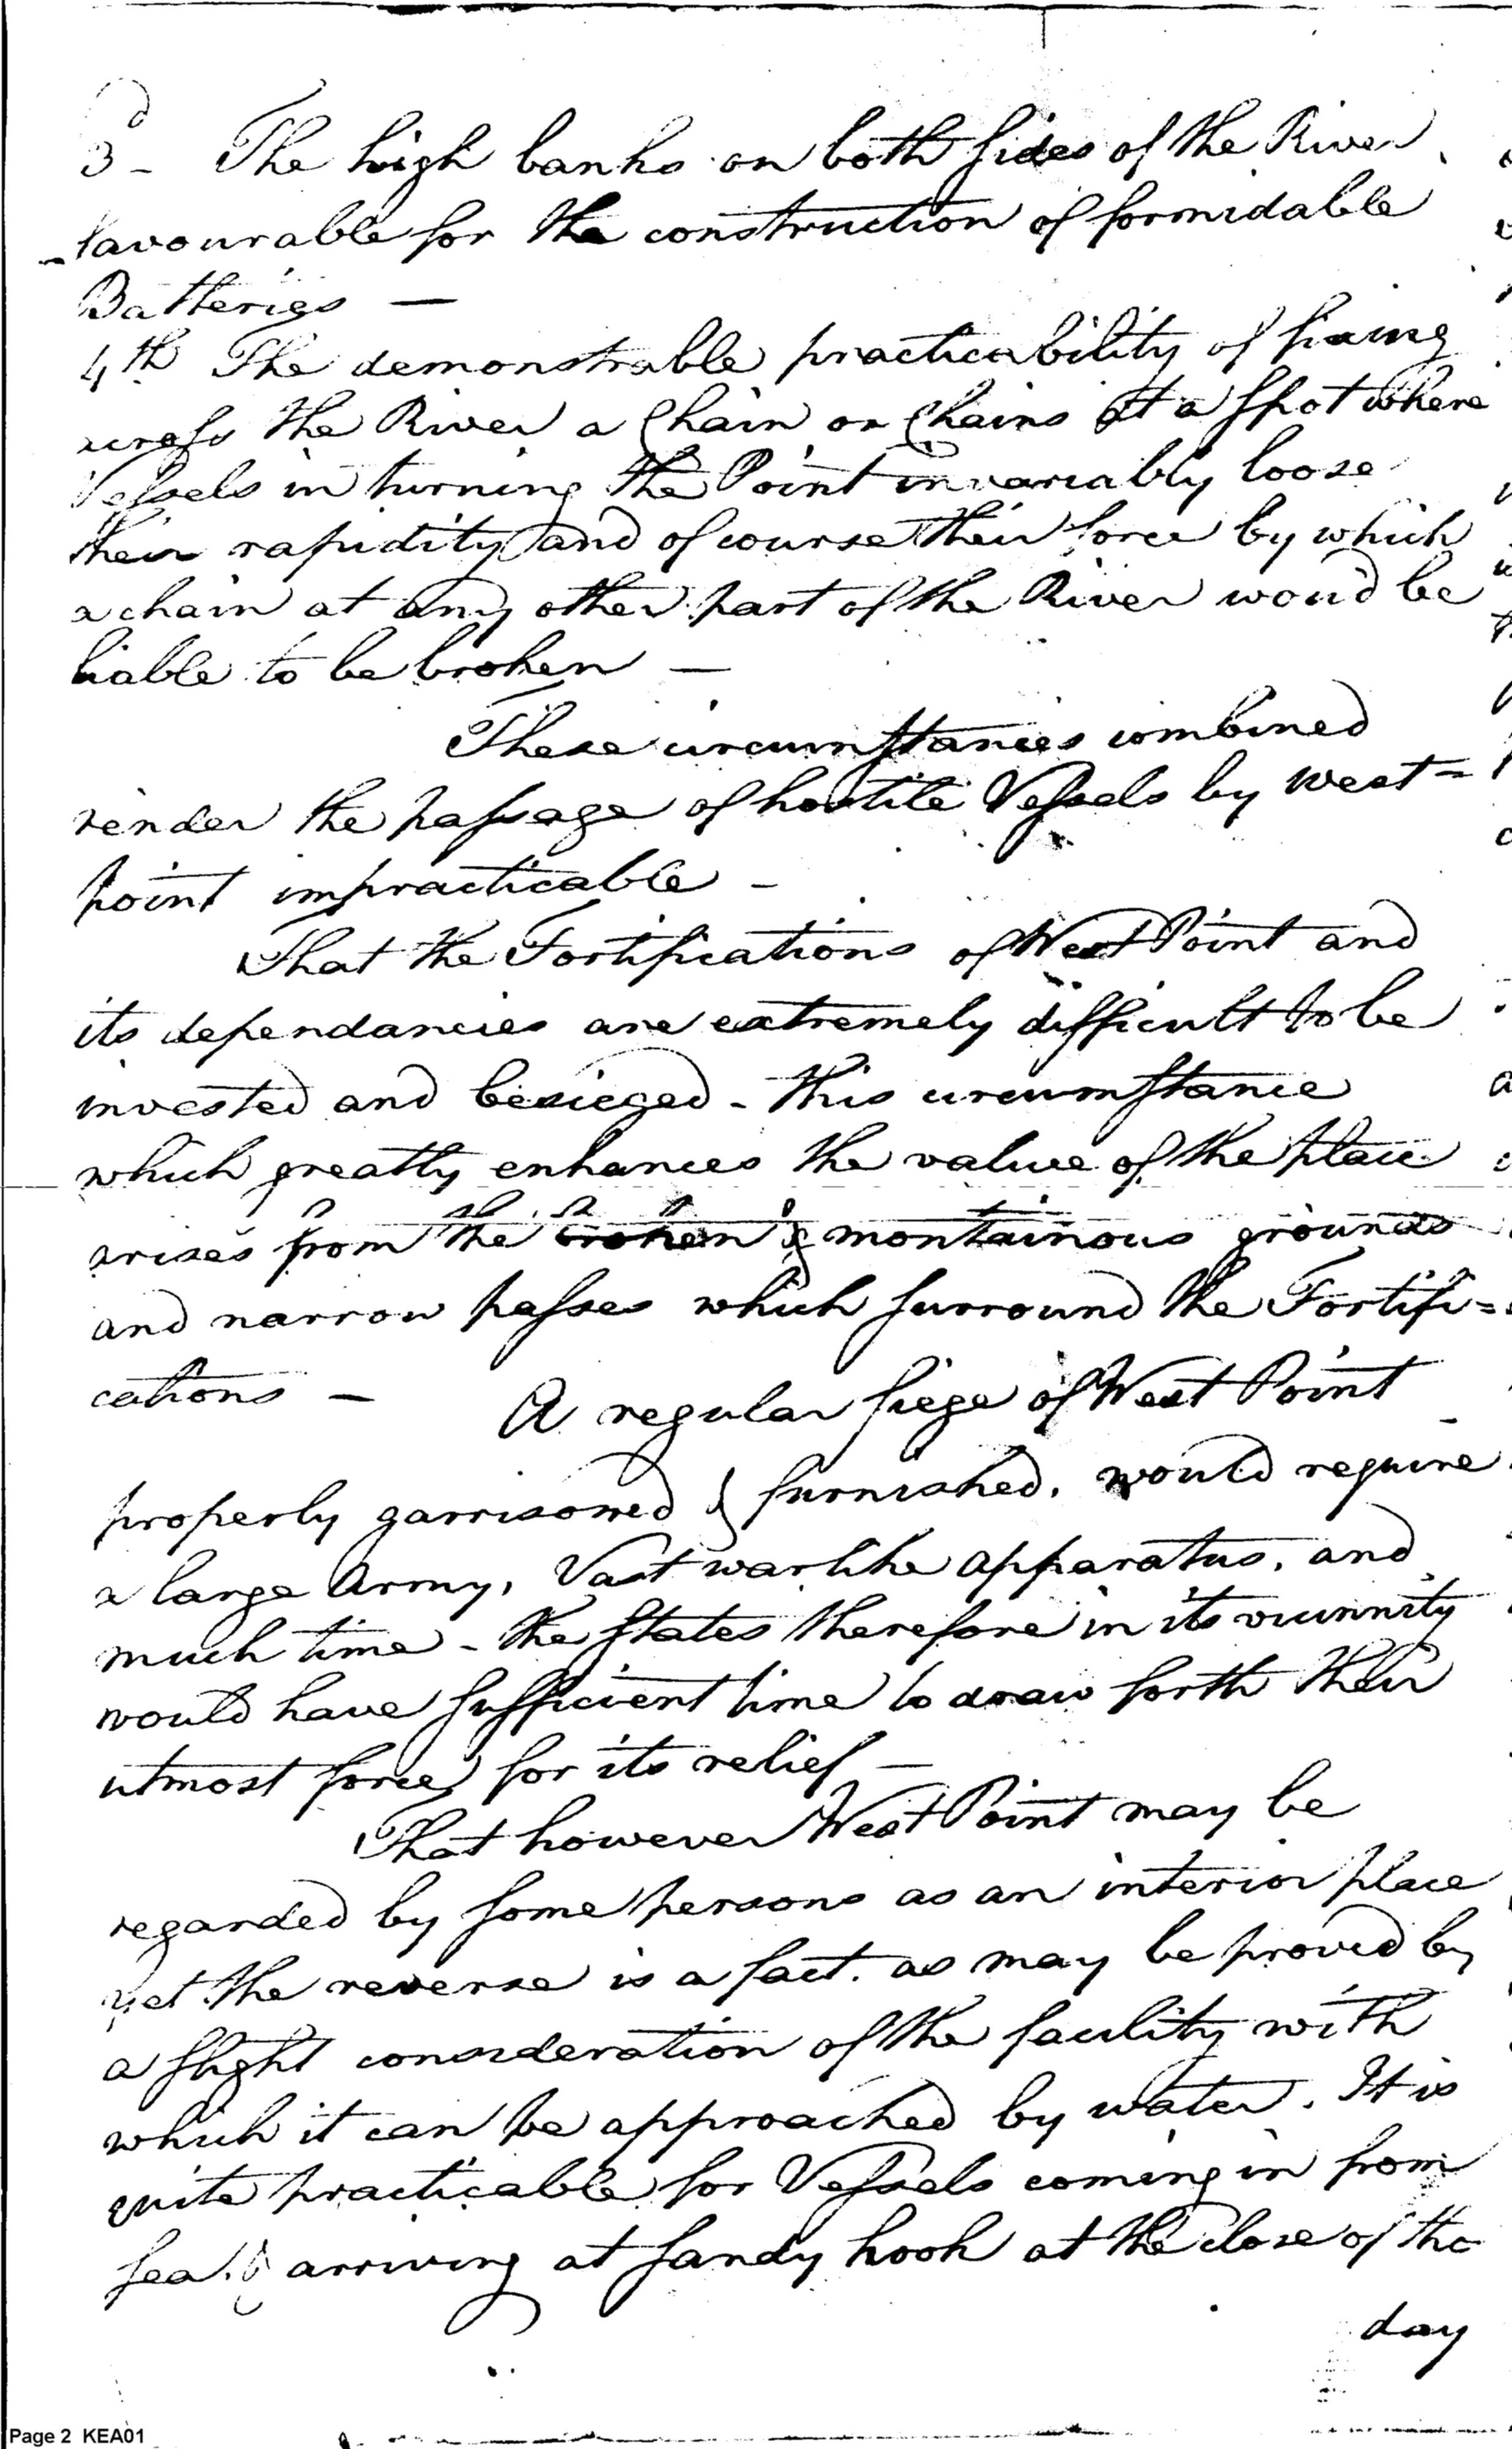 3d - The high banks on both sides of the River
favourable for the construction of formidable
Batteries —
4th The demonstrable practicability of fixing
across the River a Chain or Chains at a spot where
Vessels in turning the Point invariably loose
their rapidity and of course their force by which
a chain at any other part of the River wou'd be
liable to be broken —
These circumstances combined
render the passage of hostile Vessels by west=
point impracticable -
That the Fortifications of West Point and
its dependancies are extremely difficult to be
invested and besieged - this circumstance
which greatly enhances the value of the place
arises from the broken & montainous grounds
and narrow passes which surround the Fortifi=
cations — A regular siege of West Point
properly garrisoned & furnished, would require
a large Army, Vast warlike apparatus, and
much time - the States therefore in its vicinnity
would have sufficient time to draw forth their
utmost force for its relief —
That however West Point may be
regarded by some persons as an interior place
yet the reverse is a fact. as may be proved by
a slight consideration of the facility with
which it can be approached by water. It is
quite practicable for Vessels coming in from
sea. & arriving at sandy hook at the close of the
day
Page 2 KEA01